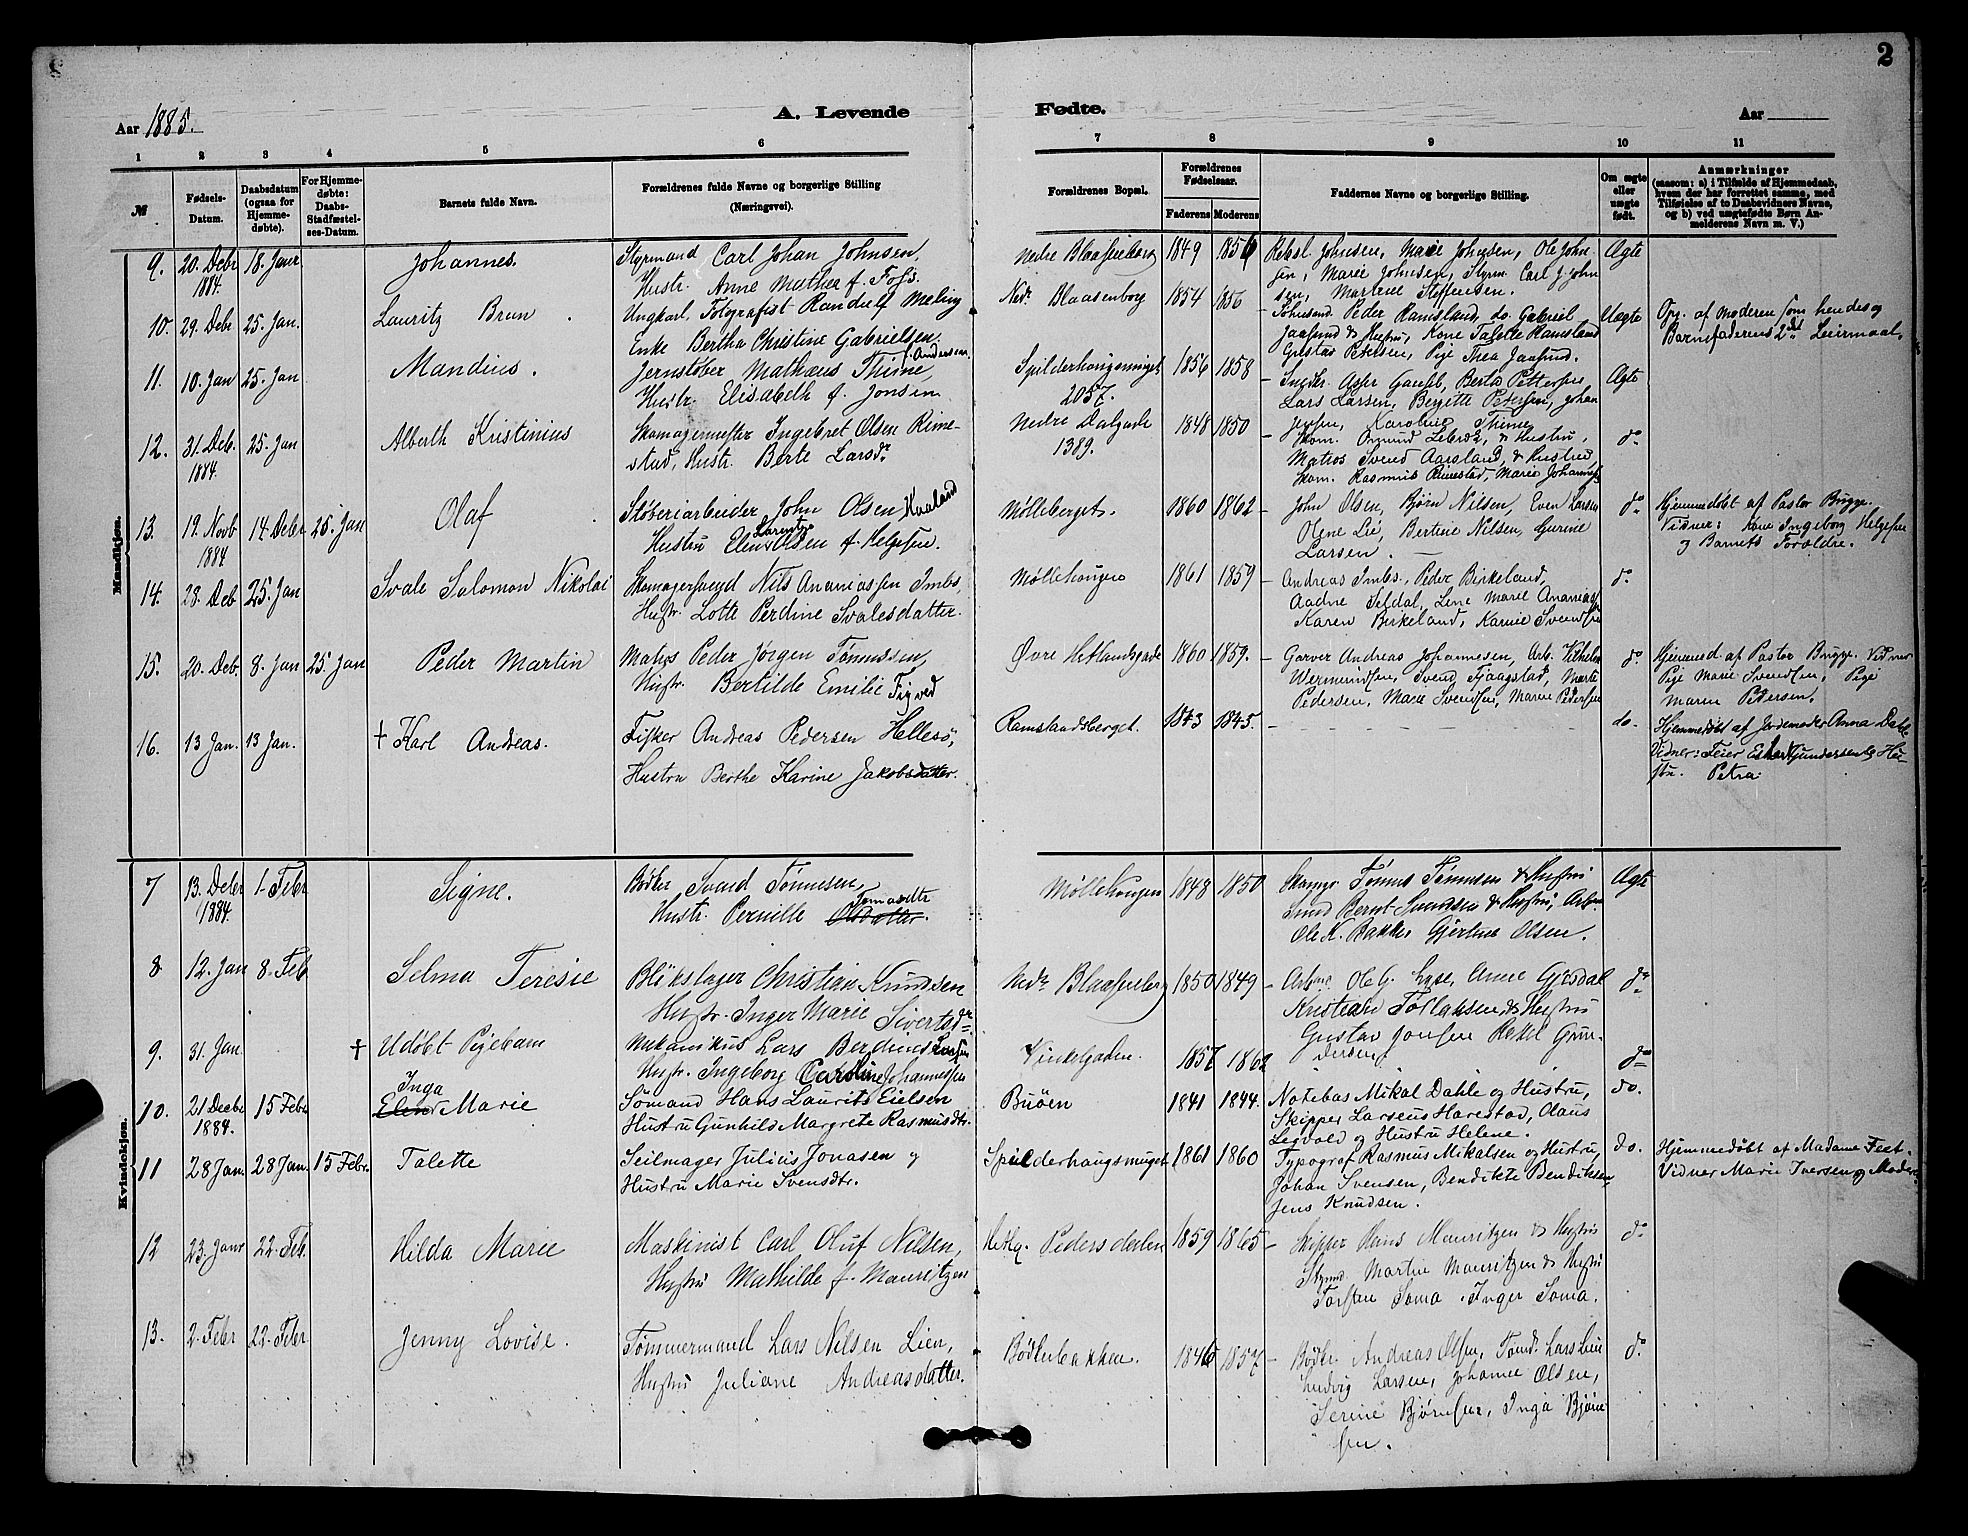 2
Aar 1885.
A. Levende
Fødte.
Aar
1 2 3 4 5 6 7 8 9 10 11
№
Fødsels-Datum.
Daabsdatum (ogsaa for Hjemme-døbte).
For Hjemme-døbte: Daabs-Stadfæstel-ses-Datum.
Barnets fulde Navn.
Forældrenes fulde Navne og borgerlige Stilling (Næringsvei).
Forældrenes Bopæl.
Forældrenes Fødselsaar.
Faderens Moderens
Faddernes Navne og borgerlige Stilling.
Om ægte eller uægte født.
Anmærkninger
(saasom: a) i Tilfælde af Hjemmedaab, hvem der har forrettet samme, med Tilføielse af to Daabsvidners Navne, og b) ved uægtefødte Børn Anmelderens Navn m. V.)
Mandkjøn.
9. 20. Debr 1884. 18. Janr Johannes.
Styrmand Carl Johan Johnsen,
Hustr. Anne Mathea f. Foss.
1849
Johnsen, Marie Johnsen, Ole John
sen, Marie Johnsen, Styrm. Carl J. John
sen, Martene Steffensen.
Ægte
10. 29. Debr 25. Jan. Lauritz Brun
Ungkarl, Fotografist Randulf Meling
Enke Bertha Christine Gabrielsen.
Nedr. Blaasenborg 1854 1856
Peder Ramsland, do. Gabriel
Jaasund & Hustru, Kone Talette Ramsland
Gustav Petersen, Pige Thea Jaasund.
Uægte
Opg. af Moderen som hendes og
Barnefaderens 2det Leiermaal.
11. 10. Jan 25. Jan Mandius.
Jernstøber Mathæus Thime,
Hustr. Elisabeth f. Jonsen
Andersen
Spilderhaugsmuget 2057. 1856 1858
Lars Larsen, Bergitte Petersen, Johan
Jensen, Karoline Thime
Ægte
12. 31. Deb. 1884. 25. Jan Alberth Kristinius
Skomagermester Ingebret Olsen Rime-
stad, Hustr. Berte Larsdr
Nedre Dalgade 1389. 1848 1850
Matros Svend Aarsland & Hustru
Skom. Rasmus Rimestad, Marie Johannes
do
13. 19. Novb 1884 14 Debr 25. Jan Olaf
Støberiarbeider John Olsen Kaaland
Hustru Eline Larentze Olsen f. Helgesen.
Mølleberget. 1860 1862
John Olsen, Bjørn Nilsen, Even Larsen
Olene Lie, Bertine Nilsen, Gurine
Larsen.
do
Hjemmedøbt af Pastor Brugge.
Vidner: Kone Ingeborg Helgesen
og Barnets Forældre.
14. 28. Deb. 25. Jan Svale Salomon Nikolai
Skomagersvend Nils Ananiassen Imbs,
Hustr. Lotte Perdine Svalesdatter.
Møllehaugen 1861 1859
Andreas Imbs, Peder Birkeland,
Aadne Seldal, Lene Marie Ananiass
Karen Birkeland, Karine Svendsen
do
15. 20. Deb. 8. Jan 25 Jan Peder Martin
Matros Peder Jørgen Tønnessen,
Hustr. Bertilde Emilie Figved
Øvre Hetlandsgade 1860 1859.
Garver Andreas Johannesen, Arb. Vilhelm
Wermundsen, Svend Tjaagstad, Marte
Pedersen, Marie Svendsen, Maren Pedersen
do
Hjemmed af Pastor Brugge. Vidner
Pige Marie Svendsen, Pige
Maren Petersen.
16. 13 Jan. 13 Jan. † Karl Andreas.
Fisker Andreas Pedersen Hellesö,
Hustru Berthe Karine Jakobsdatter.
Ramslandsberget. 1843 1845.
do.
Hjemmedøbt af Jordemoder Anna Dahle
Vidner: Feier Gundersen & Hu-
stru. Petra.
Kvindekjøn.
7 13. Debr 1884. 1. Febr Signe.
Bødker Svend Tønnesen,
Hustr. Pernille Olsdatter. Tomasdtr
Møllehaugen 1848 1850
Skomgr. Tønnes Tønnesen & Hustru
Smed Bernt Svendsen & Hustru, Arbm.
Ole K. Bakke, Gjertine Olsen.
Ægte
8. 12. Jan 8. Feb Selma Teresie
Blikslager Christian Knudsen
Hustr. Inger Marie Sivertsdr
Nedr Blaasenborg 1850 1849
Arbm. Ole G. Lyse, Anne Gjesdal
Kristian Torlaksen & Hustru
Gustav Jonsen
dersen
do
9. 31. Jan † Udøbt Pigebarn
Mekanikus Lars Berdines Larsen
Hustr. Ingeborg Caroline Johannessen
Vinkelgaden. 1857 1862
do
10. 21 Decbr 1884. 15 Febr Elen Inga Marie
Sømand Hans Laurits Eielsen
Hustru Gunhild Margrete Rasmusdtr.
Buøen 1841 1844.
Notebas Mikal Dahle og Hustru,
Skipper Larseus Harestad, Claus
Legvold og Hustru Helene.
do.
11 28 Jan. 28 Jan. 15 Febr. Talette
Seilmager Julius Jonasen og
Hustru Marie Svensdtr.
Spilderhaugsmuget 1861 1860
Typograf Rasmus Mikalsen og Hustru,
Johan Svensen, Bendikte Bendiksen
Jens Knudsen.
do.
Hjemmedøbt af Madame Feet.
Vidner Marie Iversen og Moder
12 23. Janr 22. Feb. Hilda Marie
Maskinist Carl Oluf Nilsen,
Hustru Mathilde f. Mauritzen
Hetlg. Pedersdalen 1859 1865
Skipper Hans Mauritzen & Hustru
Styrmd Martin Mauritzen & Hustru
Torsten Soma, Inger Soma.
do
13. 2. Febr 22. Febr Jenny Lovise.
Tømmermand Lars Nilsen Lien,
Hustru Juliane Andreasdatter.
Bødkerbakken. 1846 1857
Bødkr. Andreas Olsen, Tømd. Lars Lien
Ludvig Larsen, Johanne Olsen,
Serine Bjørnsen, Inga Bjørn
sen.
do